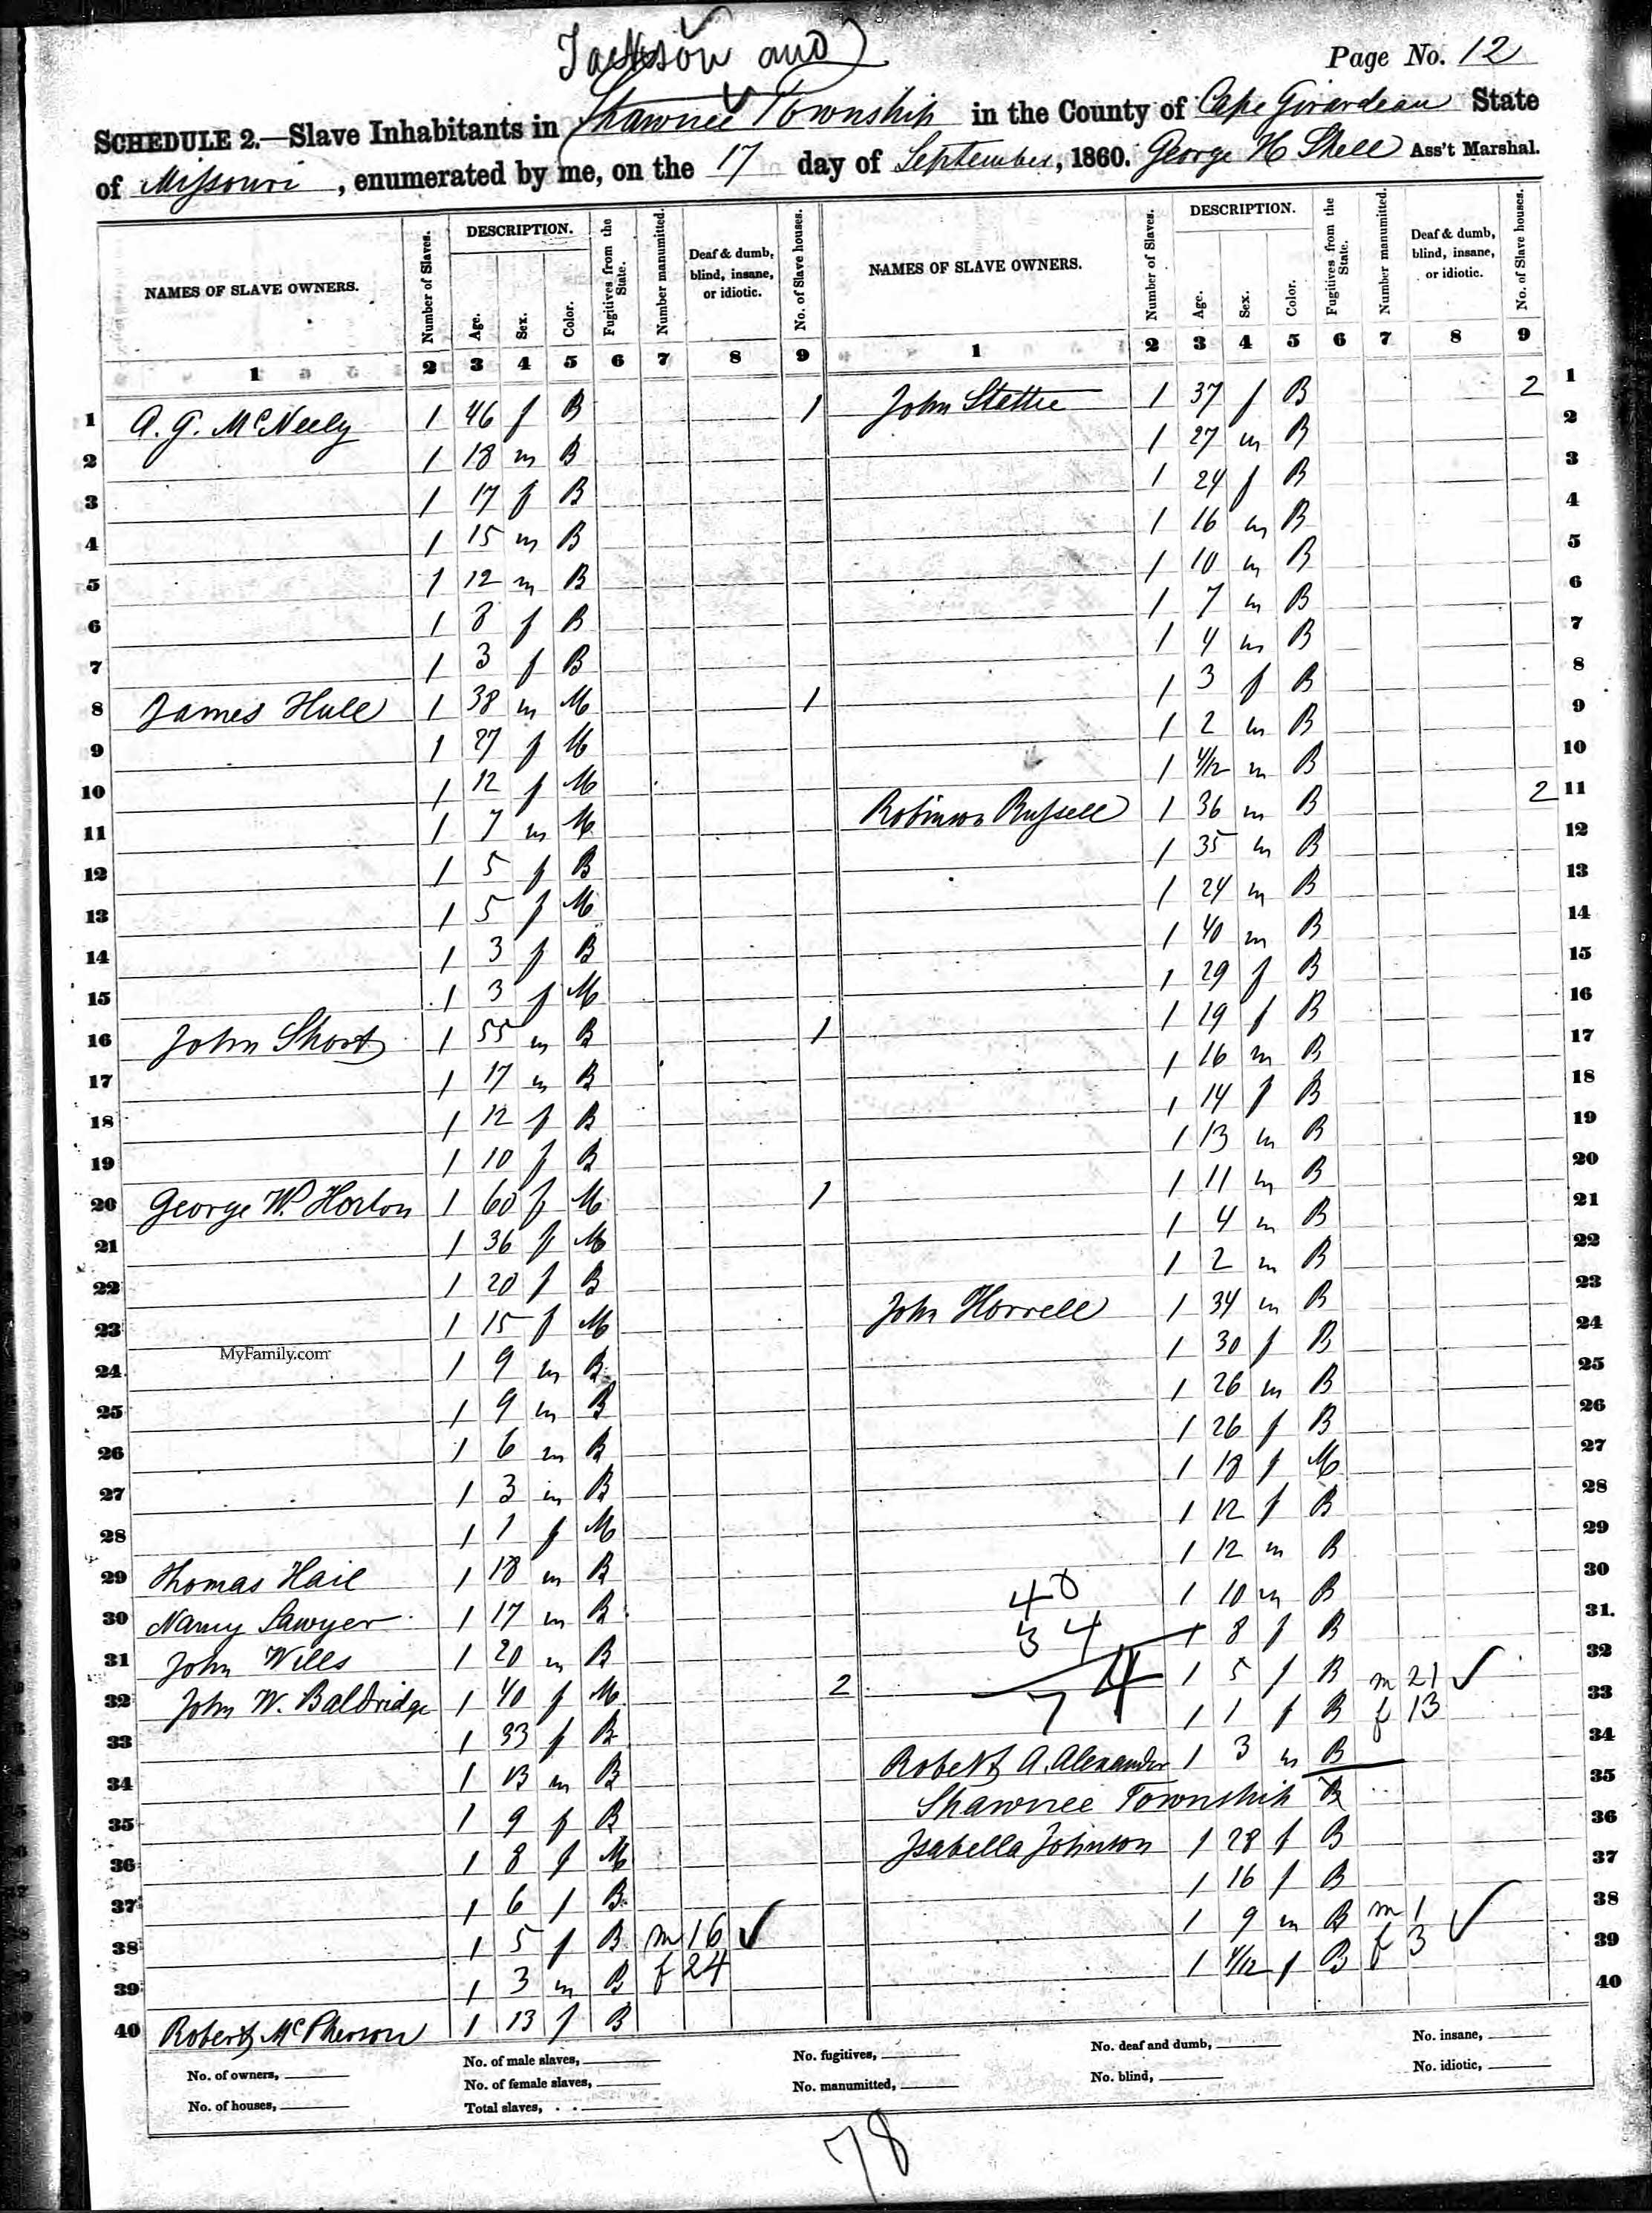 Jackson and
Page No. 12
SCHEDULE 2.—Slave Inhabitants in Shawnee Township in the County of Cape Girardeau State
of Missouri, enumerated by me, on the 17 day of September, 1860. George H Shell Ass't Marshal.
NAMES OF SLAVE OWNERS. Number of Slaves. DESCRIPTION. Age. Sex. Color. Fugitives from the State. Number manumitted. Deaf & dumb, blind, insane, or idiotic. No. of Slave houses.
1 2 3 4 5 6 7 8 9
1 A. G. McNeely 1 46 f B 1
2 1 18 m B
3 1 17 f B
4 1 15 m B
5 1 12 m B
6 1 8 f B
7 1 3 f B
8 James Hull 1 38 m M 1
9 1 27 f M
10 1 12 f M
11 1 7 m M
12 1 5 f B
13 1 5 f M
14 1 3 f B
15 1 3 f M
16 John Short 1 55 m B 1
17 1 17 m B
18 1 12 f B
19 1 10 f B
20 George W. Horton 1 60 f M 1
21 1 36 f M
22 1 20 f B
23 1 15 f M
MyFamily.com
24 1 9 m B
25 1 9 m B
26 1 6 m B
27 1 3 m B
28 1 1 f M
29 Thomas Hail 1 18 m B
30 Nancy Sawyer 1 17 m B
31 John Wills 1 20 m B
32 John W. Baldridge 1 40 f M 2
33 1 33 f B
34 1 13 m B
35 1 9 f B
36 1 8 f M
37 1 6 f B
38 1 5 f B m 16 ✓
39 1 3 m B f 24
40 Robert McPherson 1 13 f B
NAMES OF SLAVE OWNERS. Number of Slaves. DESCRIPTION. Age. Sex. Color. Fugitives from the State. Number manumitted. Deaf & dumb, blind, insane, or idiotic. No. of Slave houses.
1 2 3 4 5 6 7 8 9
John 1 37 f B 2 1
1 27 m B 2
1 24 f B 3
1 16 m B 4
1 10 m B 5
1 7 m B 6
1 4 m B 7
1 3 f B 8
1 2 m B 9
1 4/12 m B 10
Robinson Russell 1 36 m B 2 11
1 35 m B 12
1 24 m B 13
1 40 m B 14
1 29 f B 15
1 19 f B 16
1 16 m B 17
1 14 f B 18
1 13 m B 19
1 11 m B 20
1 4 m B 21
1 2 m B 22
John Horrell 1 34 m B 23
1 30 f B 24
1 26 m B 25
1 26 f B 26
1 18 f M 27
1 12 f B 28
1 12 m B 29
40 1 10 m B 30
34 1 8 f B 31.
74 1 5 f B m 21 ✓ 32
1 1 f B f 13 33
Robert A. Alexander 1 3 m B 34
Shawnee Township B 35
Isabella Johnson 1 28 f B 36
1 16 f B 37
1 9 m B m 1 ✓ 38
1 4/12 f B f 3 39
40
No. of owners, No. of male slaves, No. fugitives, No. deaf and dumb, No. insane,
No. of female slaves, No. manumitted, No. blind, No. idiotic,
No. of houses, Total slaves,
78